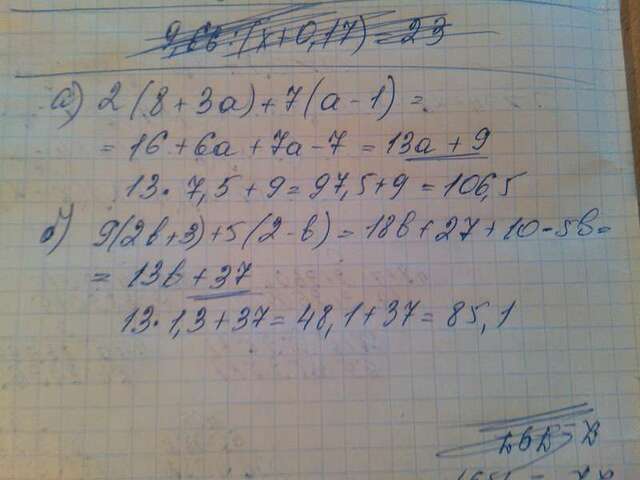 :(x+0,17) = 23
а) 2(8+3a)+7(a-1)=
= 16+6a+7a-7 = 13a+9
13·7,5+9=97,5+9=106,5
б) 9(2b+3)+5(2-b)=18b+27+10-5b=
= 13b+37
13·1,3+37=48,1+37=85,1